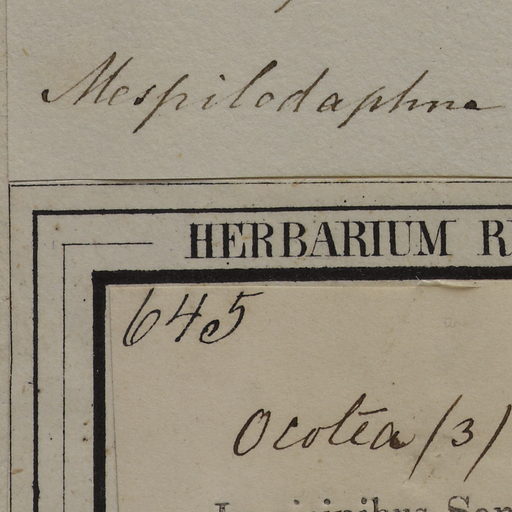 Mespilodaphne
HERBARIUM
645
Ocotea (3)